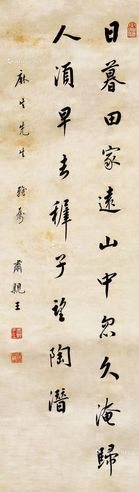 日暮田家遠山中忽久淹歸
人須早去稚子望陶潛
麻生先生 雅屬
肅親王